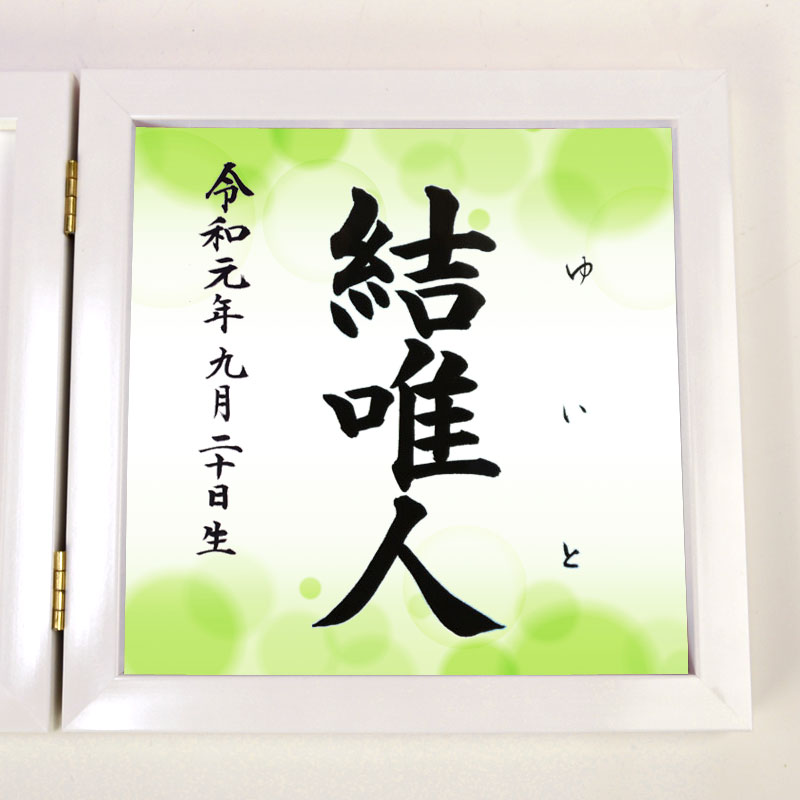 ゆいと
結唯人
令和元年九月二十日生